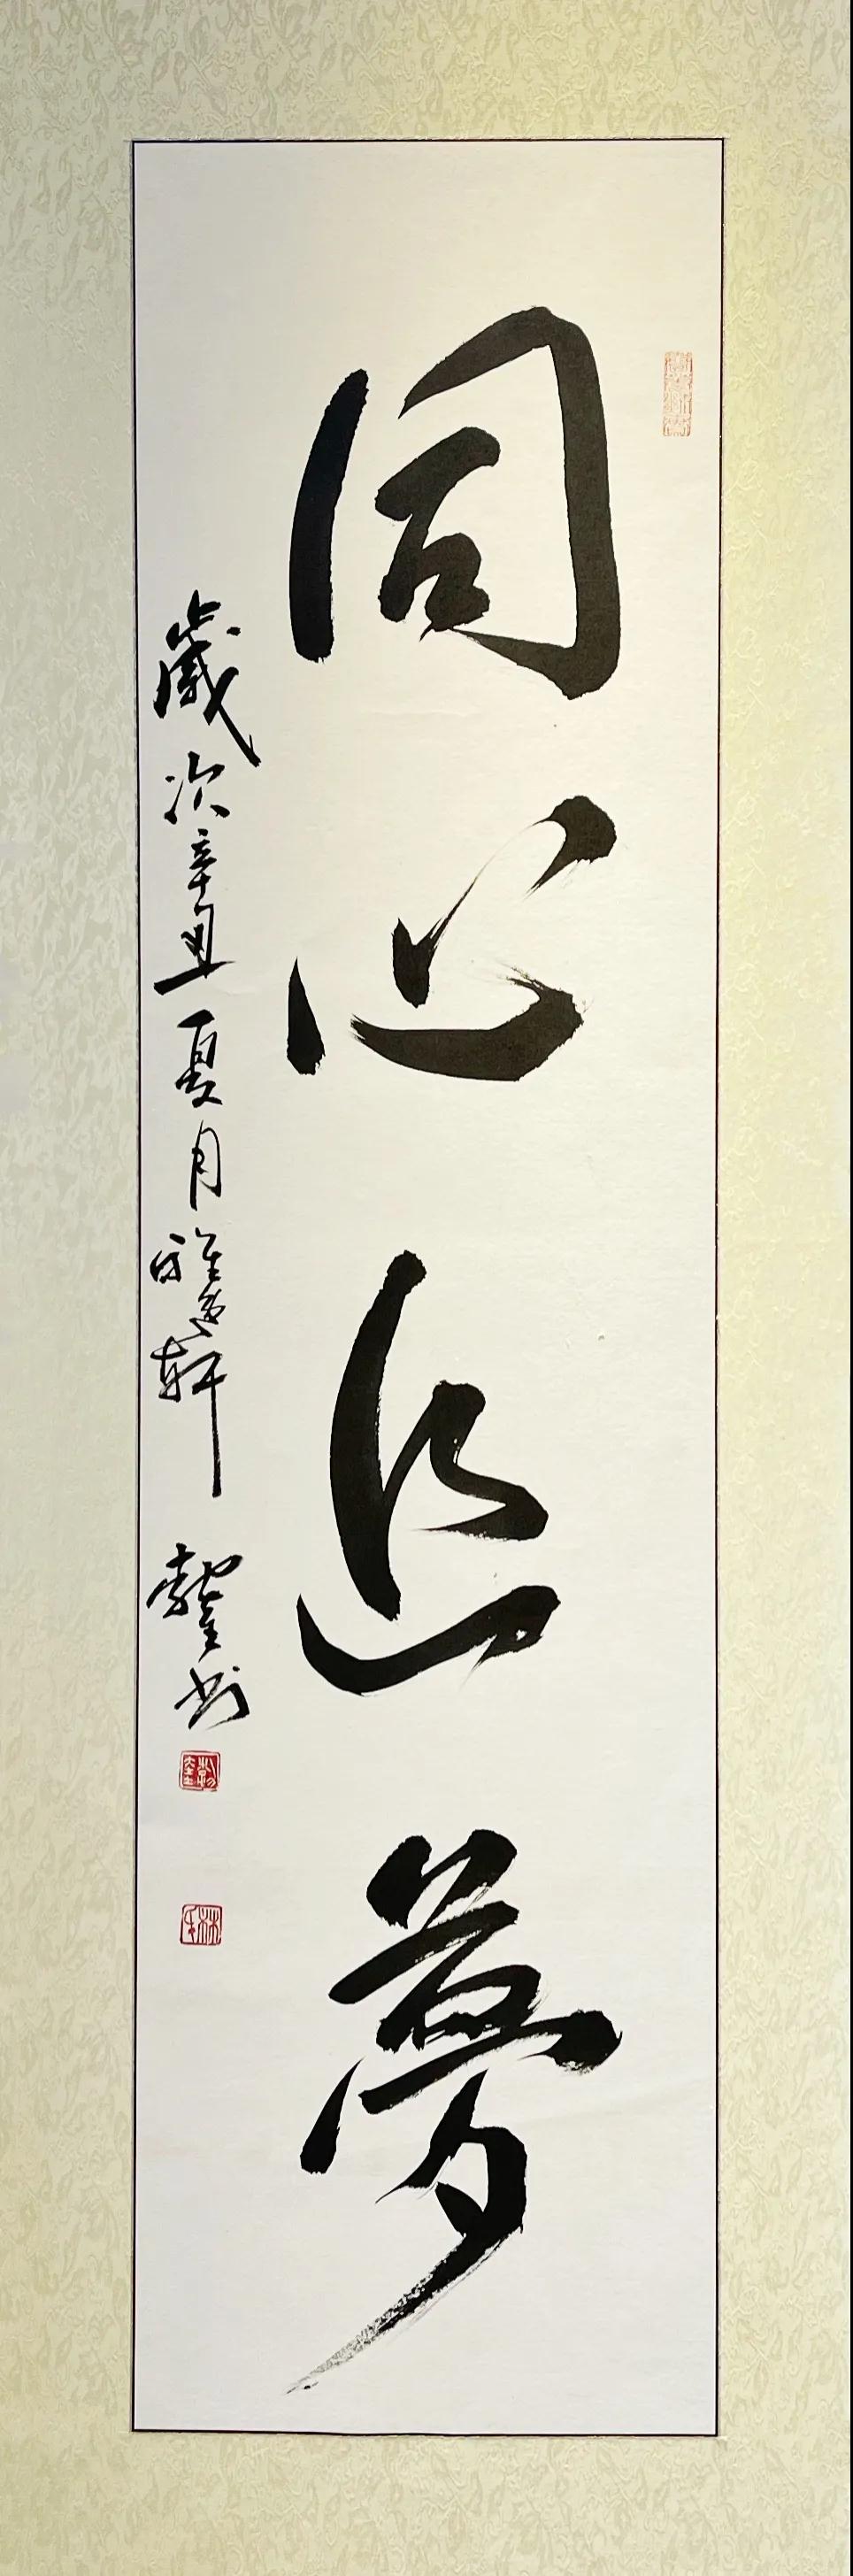 同心追夢
歲次辛丑夏月雅軒書